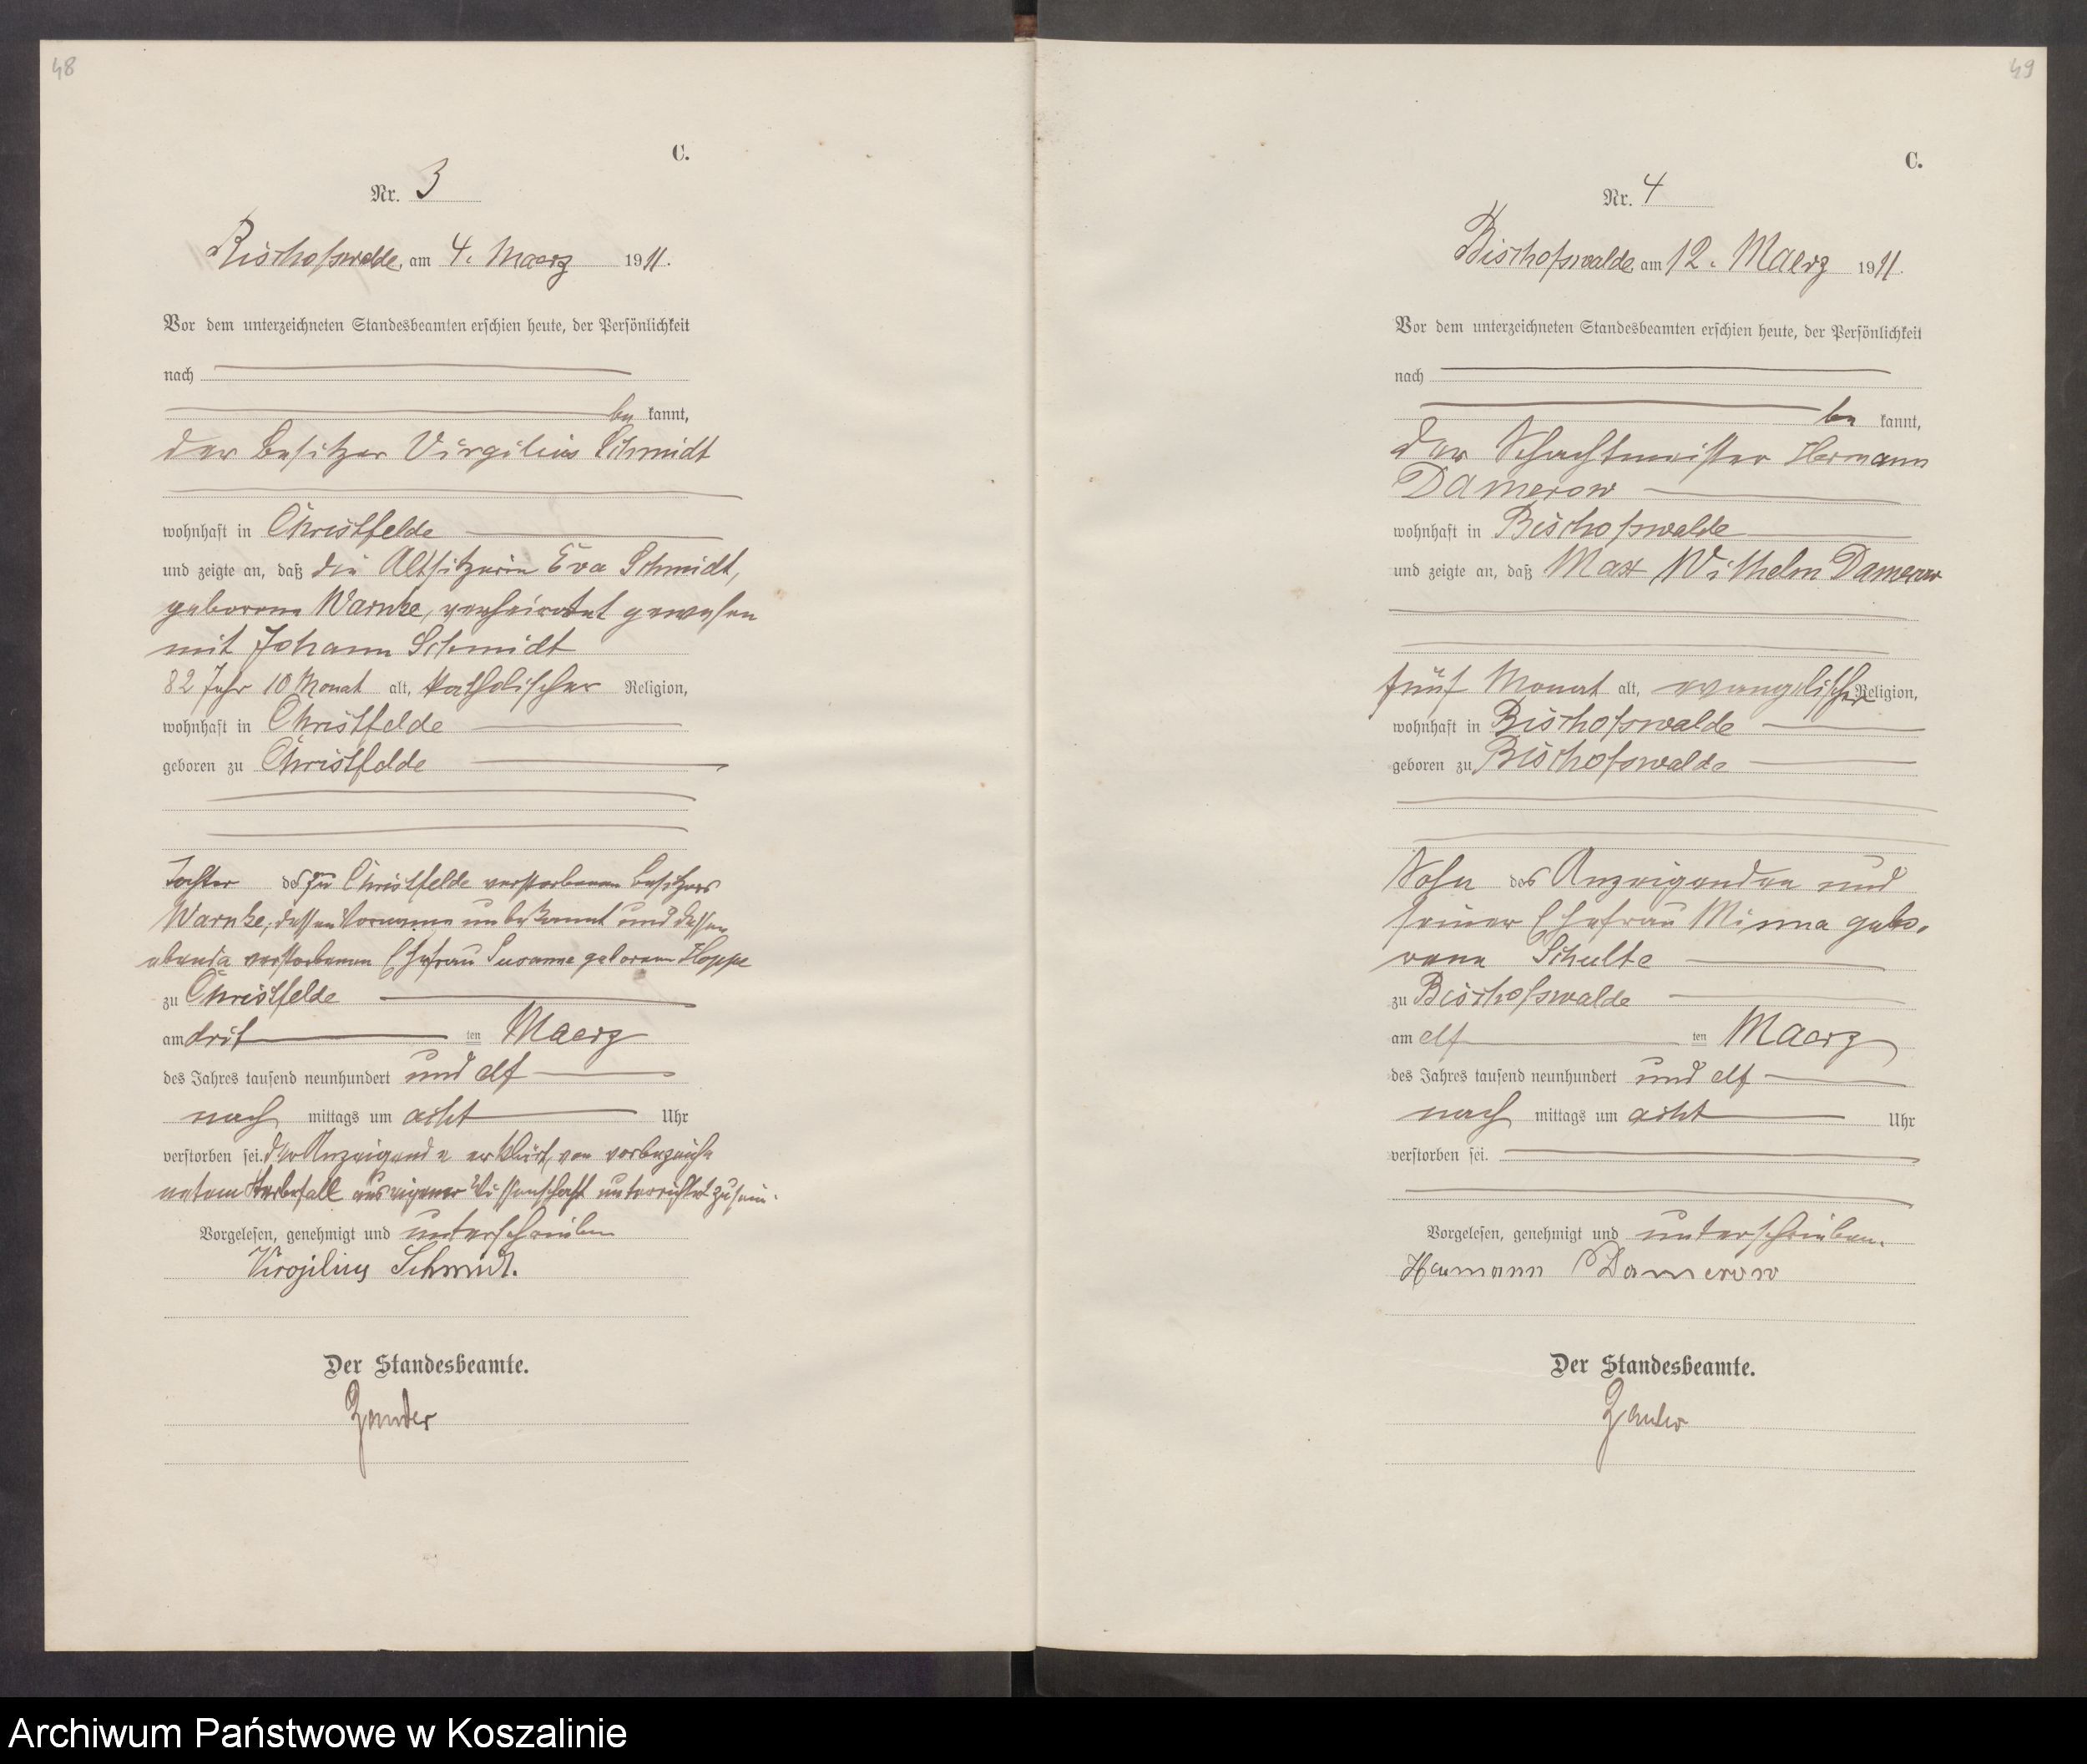 48
C.
Nr. 3
Bischofswalde, am 4. Maerz 1911.
Vor dem unterzeichneten Standesbeamten erschien heute, der Persönlichkeit
nach
be kannt,
der Besitzer Virgilius Schmidt
wohnhaft in Christfelde
und zeigte an, daß die Altsitzerin Eva Schmidt,
geborene Warnke, verheiratet gewesen
mit Johann Schmidt
82 Jahr 10 Monat alt, katholischer Religion,
wohnhaft in Christfelde
geboren zu Christfelde
Tochter des zu Christfelde verstorbenen Besitzers
Warnke, dessen Vorname unbekannt und dessen
ebenda verstorbenen Ehefrau Susanna geborenen Hoppe
zu Christfelde
am drit ten Maerz
des Jahres tausend neunhundert und elf
nach mittags um acht Uhr
verstorben sei. Der Anzeigende erklärt, von vorbezeich
netem Sterbefall aus eigener Wissenschaft unterrichtet zu sein.
Vorgelesen, genehmigt und unterschrieben
Virgilius Schmidt.
Der Standesbeamte.
Zander
49
C.
Nr. 4
Bischofswalde, am 12. Maerz 1911.
Vor dem unterzeichneten Standesbeamten erschien heute, der Persönlichkeit
nach
be kannt,
der Schachtmeister Hermann
Damerow
wohnhaft in Bischofswalde
und zeigte an, daß Max Wilhelm Damerow
fünf Monat alt, evangelischer Religion,
wohnhaft in Bischofswalde
geboren zu Bischofswalde
Sohn des Anzeigenden und
seiner Ehefrau Minna gebo-
rene Schulte
zu Bischofswalde
am elf ten Maerz
des Jahres tausend neunhundert und elf
nach mittags um acht Uhr
verstorben sei.
Vorgelesen, genehmigt und unterschrieben.
Hermann Damerow
Der Standesbeamte.
Zander
Archiwum Państwowe w Koszalinie